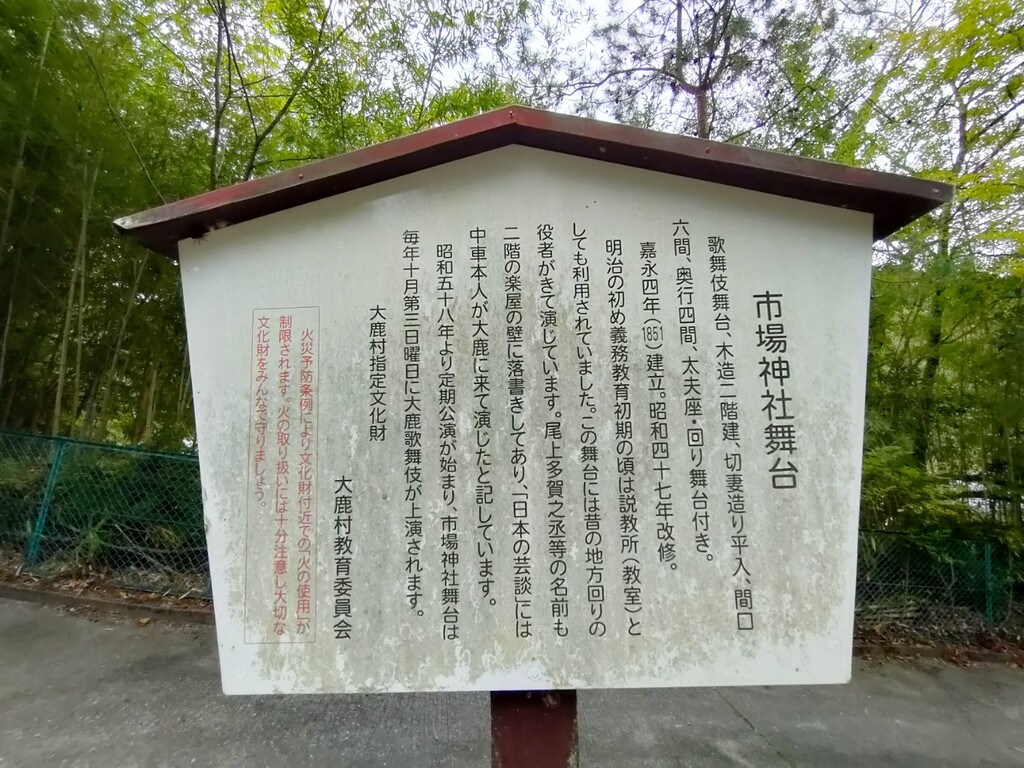 市場神社舞台
歌舞伎舞台、木造二階建、切妻造り平入、間口
六間、奥行四間、太夫座・回り舞台付き。
嘉永四年(1851)建立。昭和四十七年改修。
明治の初め義務教育初期の頃は説教所(教室)と
しても利用されていました。この舞台には昔の地方回りの
役者がきて演じています。尾上多賀之丞等の名前も
二階の楽屋の壁に落書きしてあり、「日本の芸談」には
中車本人が大鹿に来て演じたと記しています。
昭和五十八年より定期公演が始まり、市場神社舞台は
毎年十月第三日曜日に大鹿歌舞伎が上演されます。
大鹿村指定文化財
大鹿村教育委員会
火災予防条例により文化財付近での「火の使用」が
制限されます。火の取り扱いには十分注意し大切な
文化財をみんなで守りましょう。